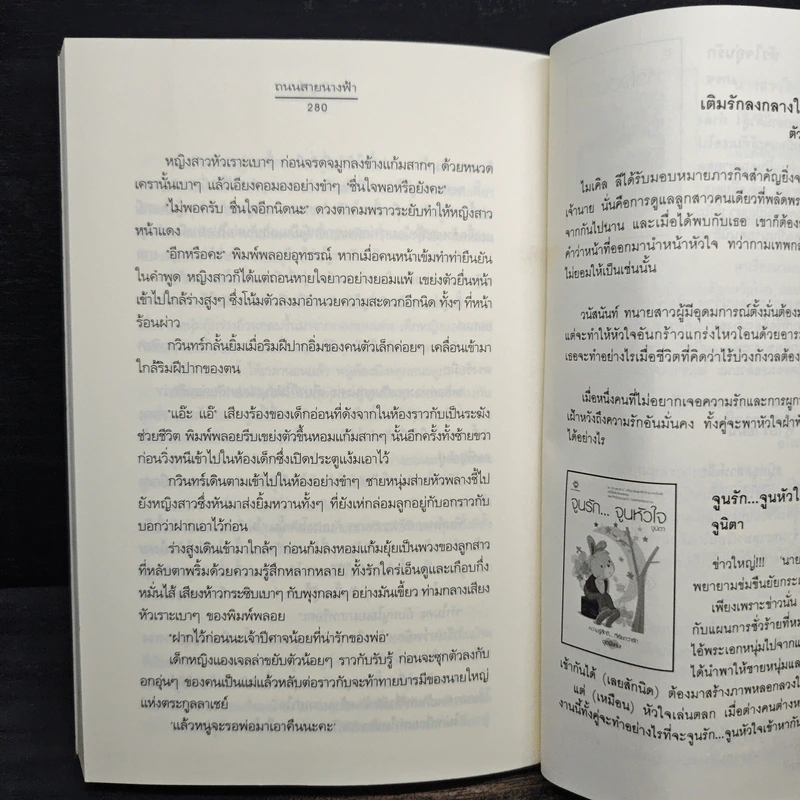 ถนนสายนางฟ้า
280
หญิงสาวหัวเราะเบาๆ ก่อนจรดจมูกลงข้างแก้มสากๆ ด้วยหนวด
เครานั้นเบาๆ แล้วเอียงคอมองอย่างขำๆ 'ชื่นใจพอหรือยังคะ'
'ไม่พอครับ ชื่นใจอีกนิดนะ' ดวงตาคมพราวระยับทำให้หญิงสาว
หน้าแดง
'อีกหรือคะ' พิมพ์พลอยอุทธรณ์ หากเมื่อคนหน้าเข้มทำท่ายืนยัน
ในคำพูด หญิงสาวก็ได้แต่ถอนหายใจยาวอย่างยอมแพ้ เขย่งตัวยื่นหน้า
เข้าไปใกล้ร่างสูงๆ ซึ่งโน้มตัวลงมาอำนวยความสะดวกอีกนิด ทั้งๆ ที่หน้า
ร้อนผ่าว
กวินทร์กลั้นยิ้มเมื่อริมฝีปากอิ่มของคนตัวเล็กค่อยๆ เคลื่อนเข้ามา
ใกล้ริมฝีปากของตน
'แอ๊ะ แอ๊' เสียงร้องของเด็กอ่อนที่ดังจากในห้องราวกับเป็นระฆัง
ช่วยชีวิต พิมพ์พลอยรีบเขย่งตัวขึ้นหอมแก้มสากๆ นั้นอีกครั้งทั้งซ้ายขวา
ก่อนวิ่งหนีเข้าไปในห้องเด็กซึ่งเปิดประตูแง้มเอาไว้
กวินทร์เดินตามเข้าไปในห้องอย่างขำๆ ชายหนุ่มส่ายหัวพลางชี้ไป
ยังหญิงสาวซึ่งหันมาส่งยิ้มหวานทั้งๆ ที่ยังเห่กล่อมลูกอยู่กับอกราวกับ
บอกว่าฝากเอาไว้ก่อน
ร่างสูงเดินเข้ามาใกล้ๆ ก่อนก้มลงหอมแก้มยุ้ยเป็นพวงของลูกสาว
ที่หลับตาพริ้มด้วยความรู้สึกหลากหลาย ทั้งรักใคร่เอ็นดูและเกือบกึ่ง
หมั่นไส้ เสียงห้าวกระซิบเบาๆ กับพุงกลมๆ อย่างมันเขี้ยว ท่ามกลางเสียง
หัวเราะเบาๆ ของพิมพ์พลอย
'ฝากไว้ก่อนนะเจ้าปีศาจน้อยที่น่ารักของพ่อ'
เด็กหญิงแองเจลล่าขยับตัวน้อยๆ ราวกับรับรู้ ก่อนจะซุกตัวลงกับ
อกอุ่นๆ ของคนเป็นแม่แล้วหลับต่อราวกับจะท้าทายบารมีของนายใหญ่
แห่งตระกูลลาเซย์
'แล้วหนูจะรอพ่อมาเอาคืนนะคะ'
เติมรักลงกลางใ
ตัว
ไมเคิล ลีได้รับมอบหมายภารกิจสำคัญยิ่งจ
เจ้านาย นั่นคือการดูแลลูกสาวคนเดียวที่พลัดพร
จากกันไปนาน และเมื่อได้พบกับเธอ เขาก็ต้อง
คำว่าหน้าที่ออกมานำหน้าหัวใจ ทว่ากามเทพก
ไม่ยอมให้เป็นเช่นนั้น
วนัสนันท์ ทนายสาวผู้มีอุดมการณ์ตั้งมั่นต้องม
แต่จะทำให้หัวใจอันกร้าวแกร่งไหวโอนด้วยอาร
เธอจะทำอย่างไรเมื่อชีวิตที่คิดว่าไร้บ่วงกังวลต้อง
เมื่อหนึ่งคนที่ไม่อยากเจอความรักและการผูก
เฝ้าหวังถึงความรักอันมั่นคง ทั้งคู่จะพาหัวใจฝ่าฟั
ได้อย่างไร
จูนรัก... จูนหัวใจ
จูนิตา
จูนรัก...จูนหัวใ
จูนิตา
ข่าวใหญ่!!! นาย
พยายามข่มขืนยัยกระเ
เพียงเพราะข่าวนั่น
กับแผนการชั่วร้ายที่ห
ไอ้พระเอกหนุ่มไปจากแ
ได้นำพาให้ชายหนุ่มแล
เข้ากันได้ (เลยสักนิด) ต้องมาสร้างภาพหลอกลวงใ
แต่ (เหมือน) หัวใจเล่นตลก เมื่อต่างคนต่างห
งานนี้ทั้งคู่จะทำอย่างไรที่จะจูนรัก...จูนหัวใจเข้าหากัน